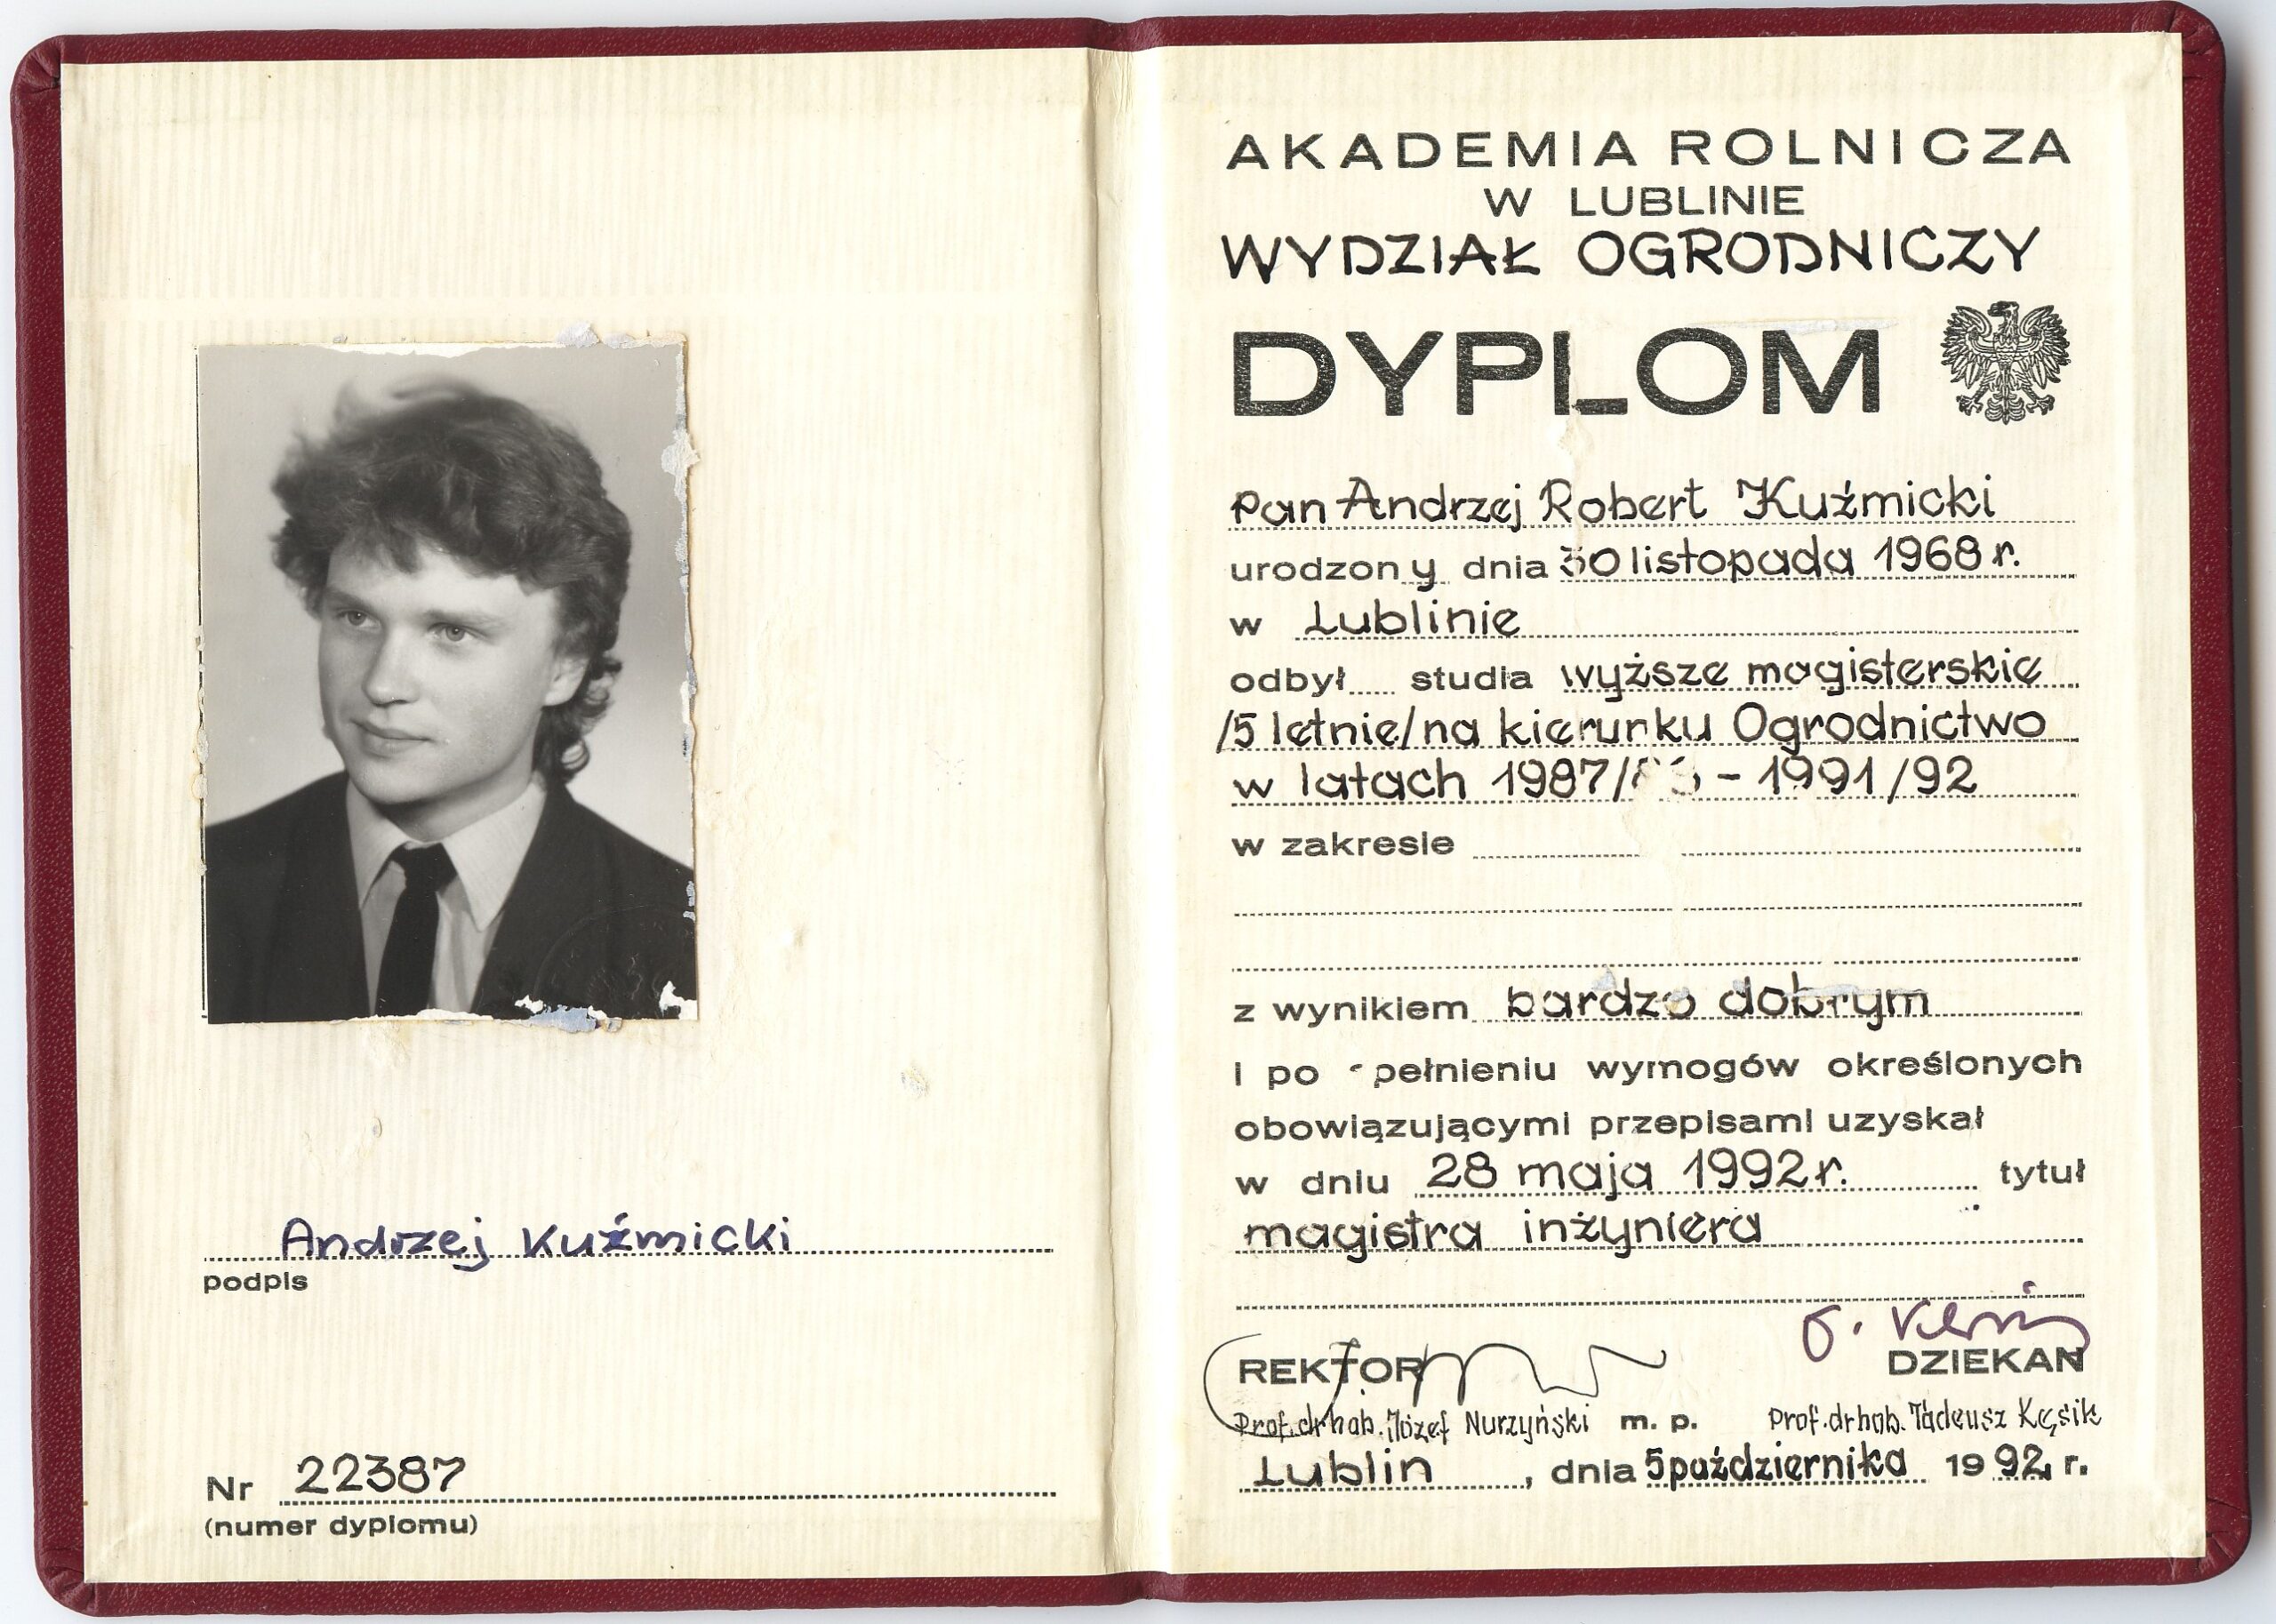 Andrzej Kuźmicki
podpis
Nr 22387
(numer dyplomu)
AKADEMIA ROLNICZA
W LUBLINIE
WYDZIAŁ OGRODNICZY
DYPLOM
pan Andrzej Robert Kuźmicki
urodzony dnia 30 listopada 1968 r.
w Lublinie
odbył studia wyższe magisterskie
/5 letnie/ na kierunku Ogrodnictwo
w latach 1987/ - 1991/92
w zakresie
z wynikiem bardzo dobrym
i po pełnieniu wymogów określonych
obowiązującymi przepisami uzyskał
w dniu 28 maja 1992 r. tytuł
magistra inżyniera
REKTOR DZIEKAN
Prof. dr hab. Józef Nurzyński m. p. Prof. dr hab. Tadeusz Kęsik
Lublin, dnia 5 października 1992 r.